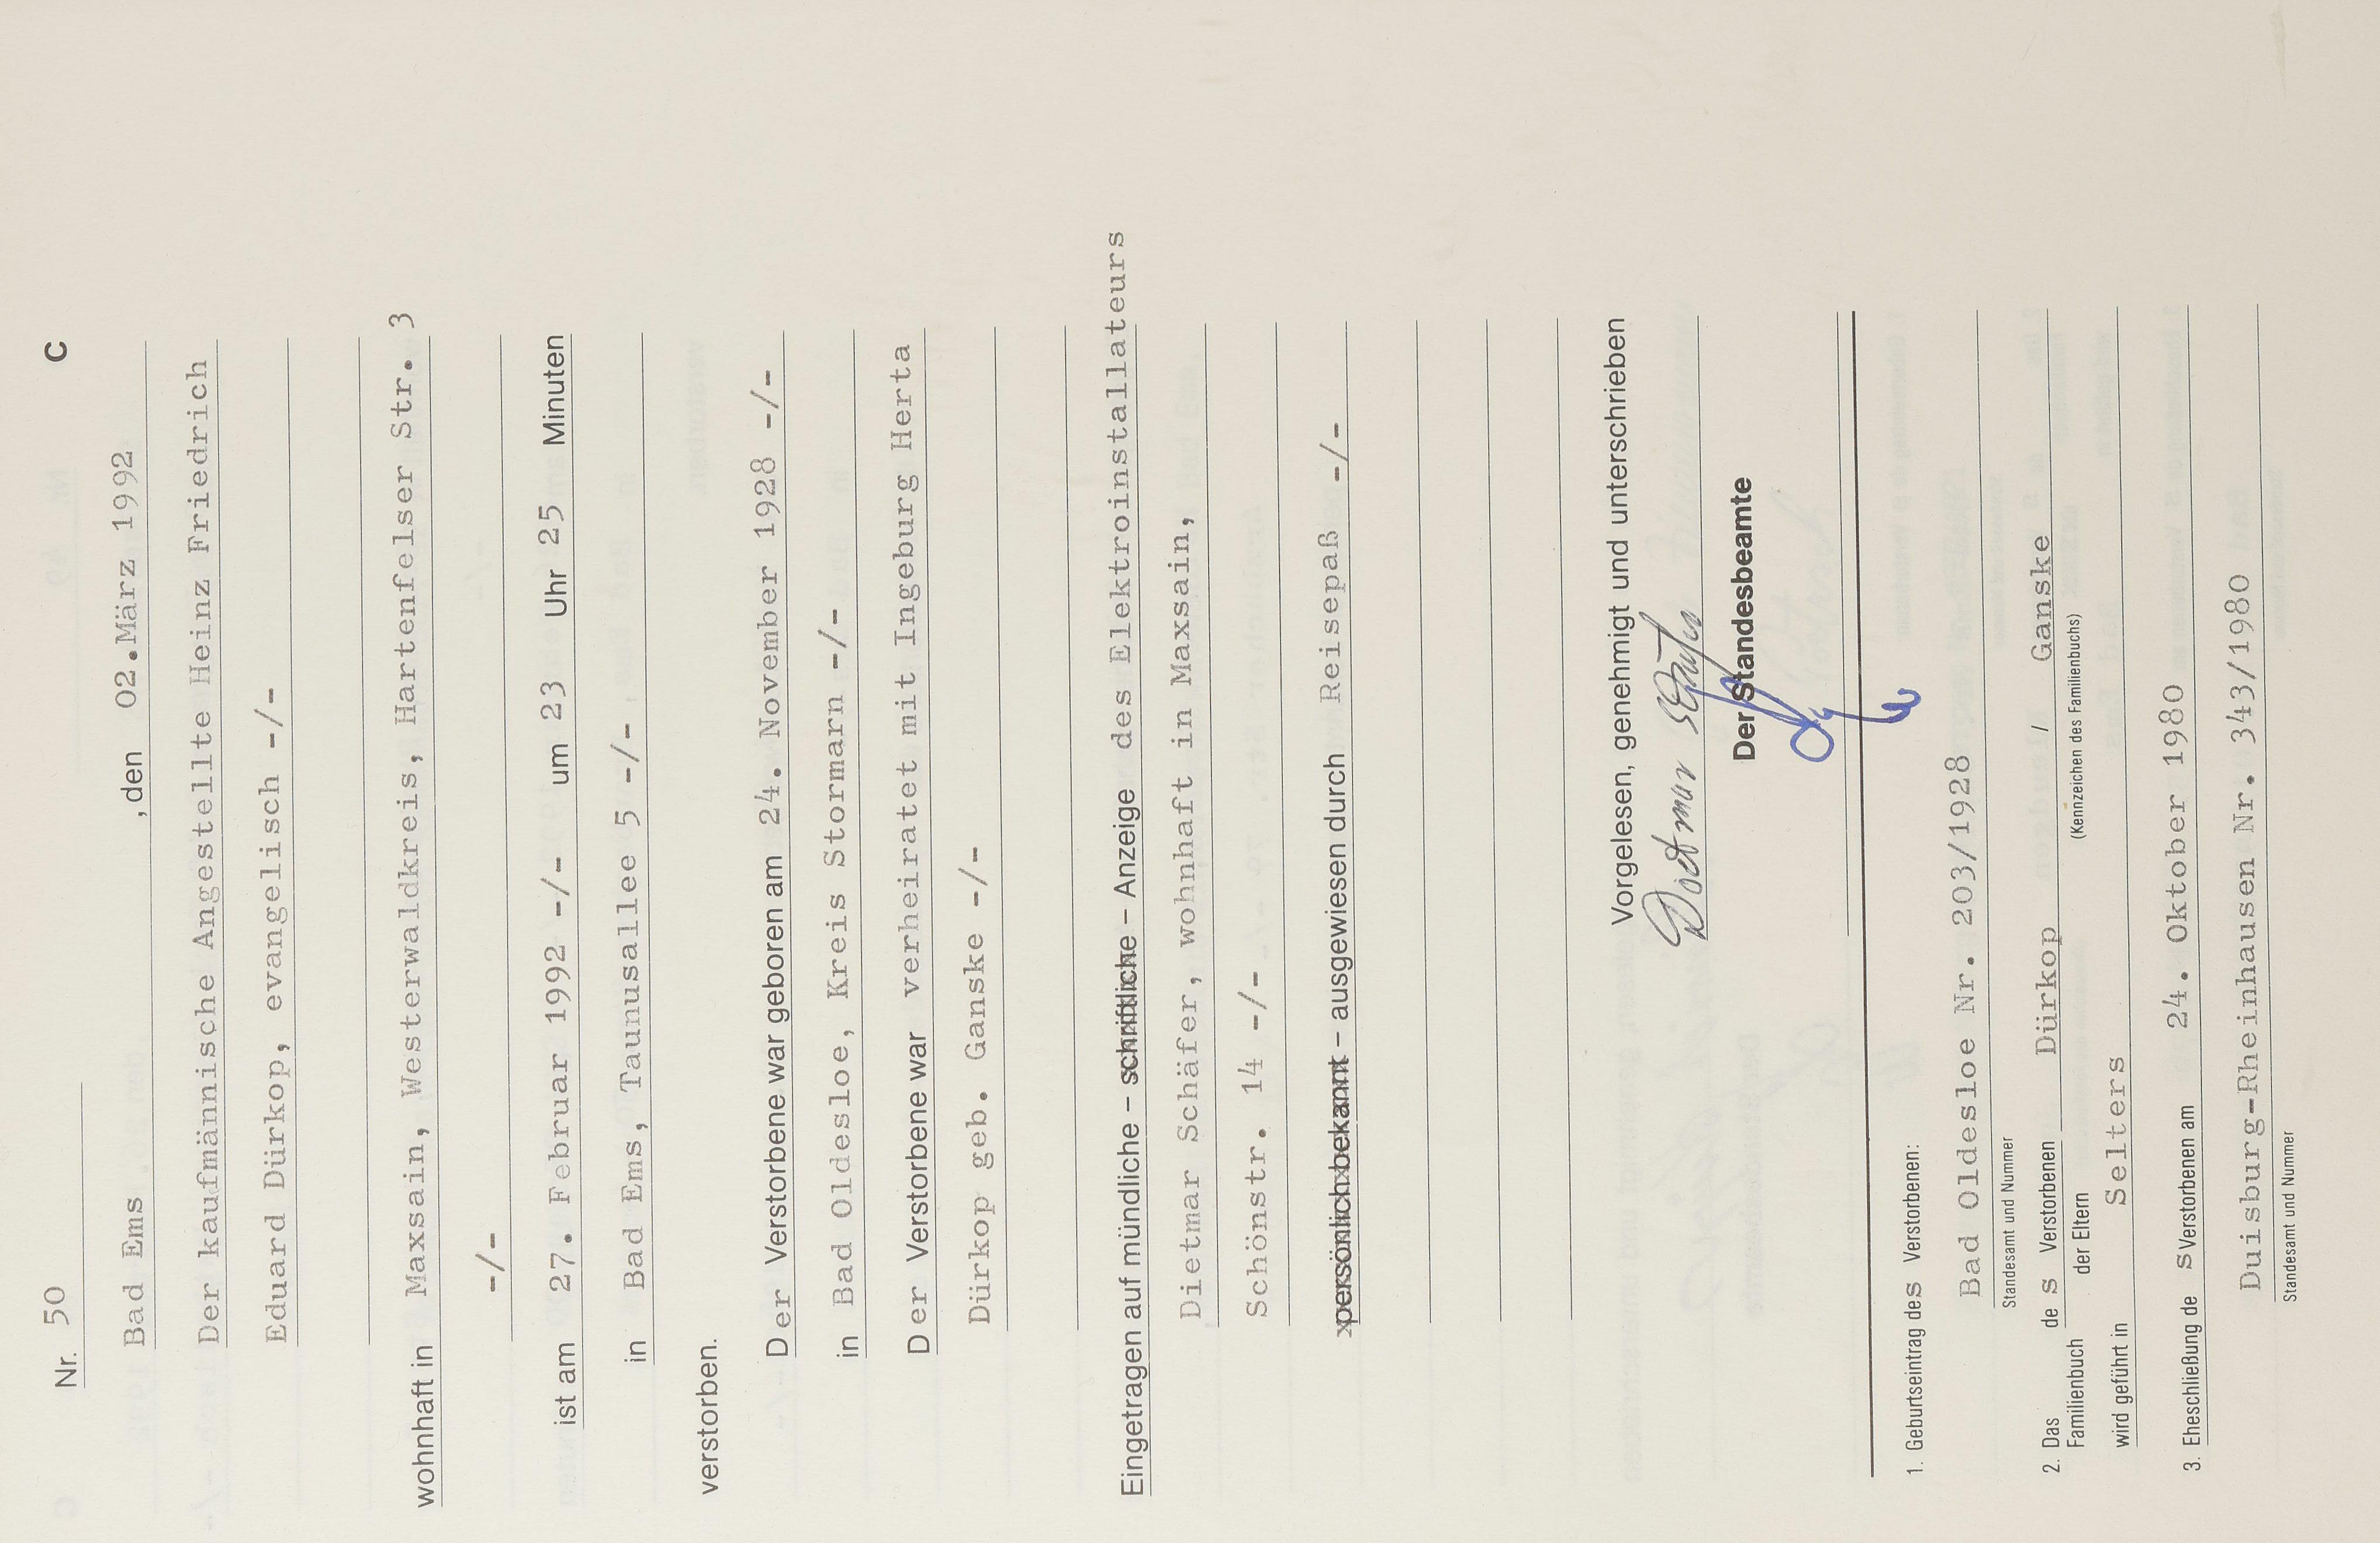 Nr. 50 C
Bad Ems , den 02.März 1992
Der kaufmännische Angestellte Heinz Friedrich
Eduard Dürkop, evangelisch -/-
wohnhaft in Maxsain, Westerwaldkreis, Hartenfelser Str. 3
-/-
ist am 27. Februar 1992 -/- um 23 Uhr 25 Minuten
in Bad Ems, Taunusallee 5 -/-
verstorben.
Der Verstorbene war geboren am 24. November 1928 -/-
in Bad Oldesloe, Kreis Stormarn -/-
Der Verstorbene war verheiratet mit Ingeburg Herta
Dürkop geb. Ganske -/-
Eingetragen auf mündliche – schriftliche – Anzeige des Elektroinstallateurs
Dietmar Schäfer, wohnhaft in Maxsain,
Schönstr. 14 -/-
persönlich bekannt – ausgewiesen durch Reisepaß -/-
Vorgelesen, genehmigt und unterschrieben
Dietmar Schäfer
Der Standesbeamte
1. Geburtseintrag des Verstorbenen:
Bad Oldesloe Nr. 203/1928
Standesamt und Nummer
2. Das Familienbuch des Verstorbenen der Eltern Dürkop / Ganske
(Kennzeichen des Familienbuchs)
wird geführt in Selters
3. Eheschließung des Verstorbenen am 24. Oktober 1980
Duisburg-Rheinhausen Nr. 343/1980
Standesamt und Nummer